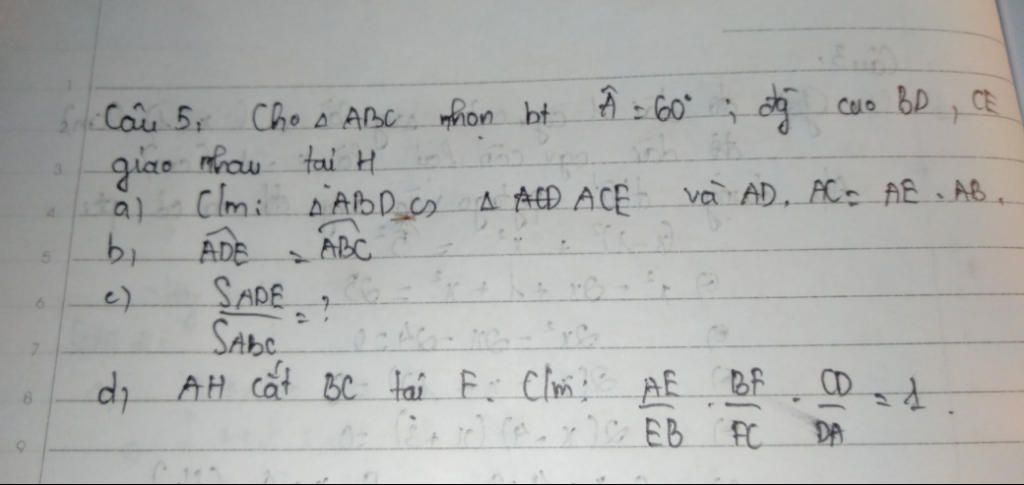 Câu 5: Cho △ABC nhọn bt Â = 60°; đg cao BD, CE
giao nhau tại H
a) C/m: △ABD ∽ △ ACE và AD. AC = AE. AB.
b) ADE = ABC
c) SADE/SABC = ?
d) AH cắt BC tại F. C/m: AE/EB . BF/FC . CD/DA = 1.